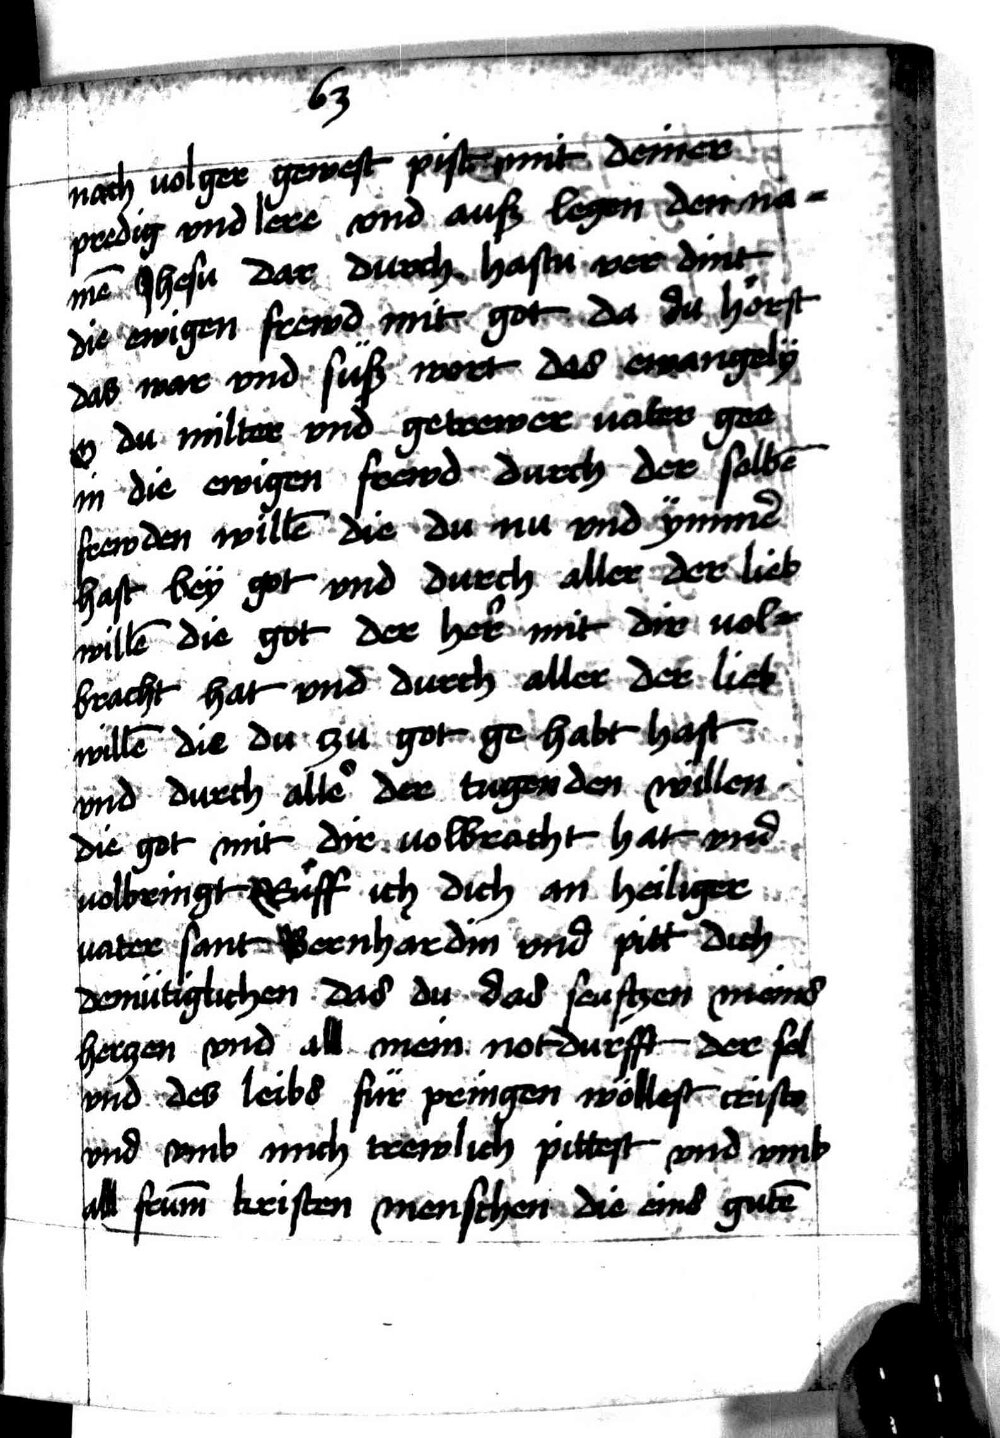 63
nach uolger gewest pist mit deiner
predig vnd lere vnd auß legen den na=
mē Jhesu dar durch hastu ver dint
die ewigen frewd mit got da du hörst
das war vnd süß wort das ewangelÿ
O du milter vnd getrewer uater gee
in die ewigen frewd durch der selbē
frewden willē die du nu vnd ÿmmer
hast beÿ got vnd durch aller der lieb
willē die got der her mit dir uol=
bracht hat vnd durch aller der lieb
willē die du zu got ge habt hast
vnd durch alle der tugenden willen
die got mit dir uolbracht hat vnd
uolbringt Rüff ich dich an heiliger
uater sant Bernhardin vnd pitt dich
demütiglichen das du das seuftzen meins
herzen vnd all mein notdurfft der sel
vnd des leibs für pringen wöllest cristo
vnd vmb mich trewlich pittest vnd vmb
all frum̄ kristen menschen die eins gutē